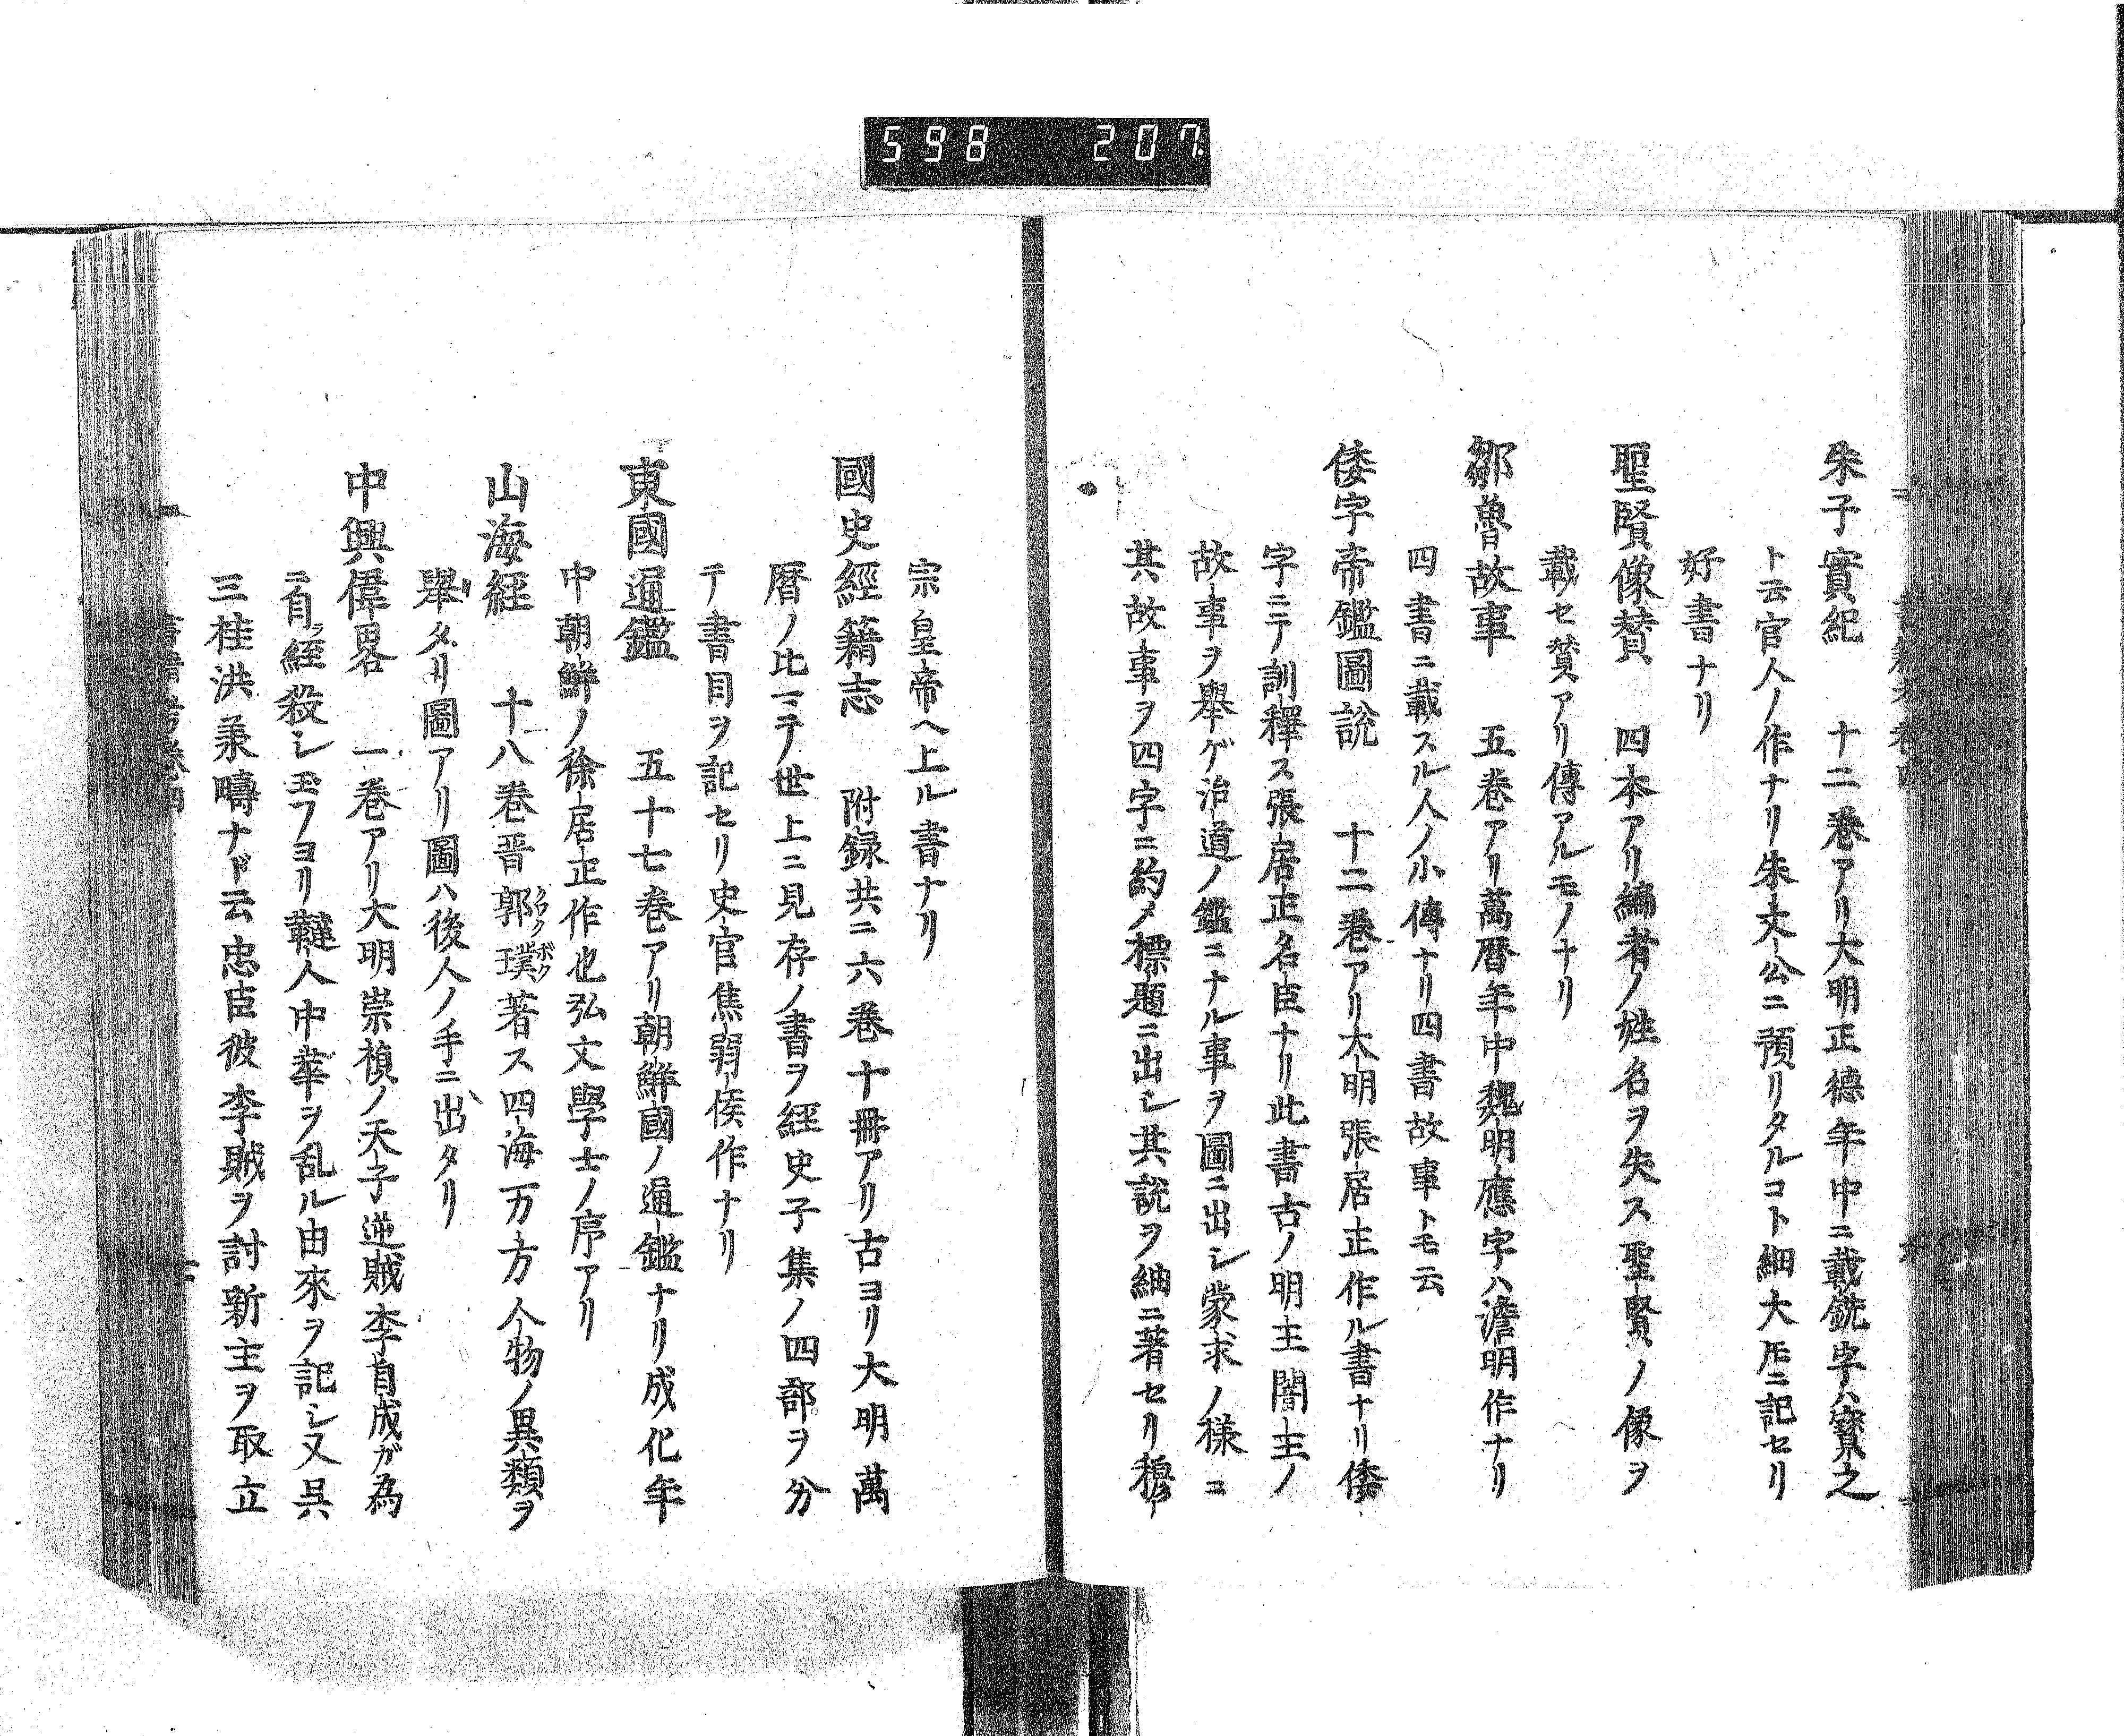 598 207.
朱子實紀 十二巻アリ大明正德年中ニ載銑字ハ寳之
ト云官人ノ作ナリ朱文公ニ預リタルコト細大𪜈ニ記セリ
好書ナリ
聖賢像賛 四本アリ編者ノ姓名ヲ失ス聖賢ノ像ヲ
載セ賛アリ傳アルモノナリ
鄒魯故事 五巻アリ萬暦年中魏明應字ハ澹明作ナリ
四書ニ載スル人ノ小傳ナリ四書故事トモ云
倭字帝鑑圖説 十二巻アリ大明張居正作ル書ナリ倭
字ニテ訓釋ス張居正名臣ナリ此書古ノ明主闇主ノ
故事ヲ舉ゲ治道ノ鑑ニナル事ヲ圖ニ出シ蒙求ノ様ニ
其故事ヲ四字ニ約メ標題ニ出シ其説ヲ紬ニ著セリ穆
宗皇帝ヘ上ル書ナリ
國史經籍志 附録共ニ六巻十冊アリ古ヨリ大明萬
暦ノ比ニテ世上ニ見存ノ書ヲ経史子集ノ四部ヲ分
テ書目ヲ記セリ史官焦弱侯作ナリ
東國通鑑 五十七巻アリ朝鮮國ノ通鑑ナリ成化年
中朝鮮ノ徐居正作也弘文學士ノ序アリ
山海経 十八巻晋郭璞著ス四海万方人物ノ異類ヲ
舉タリ圖アリ圖ハ後人ノ手ニ出タリ
中興偉畧 一巻アリ大明崇禎ノ天子逆賊李自成ガ為
ニ自ラ経殺シ玉フヨリ韃人中華ヲ乱ル由來ヲ記シ又呉
三桂洪承疇ナド云忠臣彼李賊ヲ討新主ヲ取立
書籍考巻四